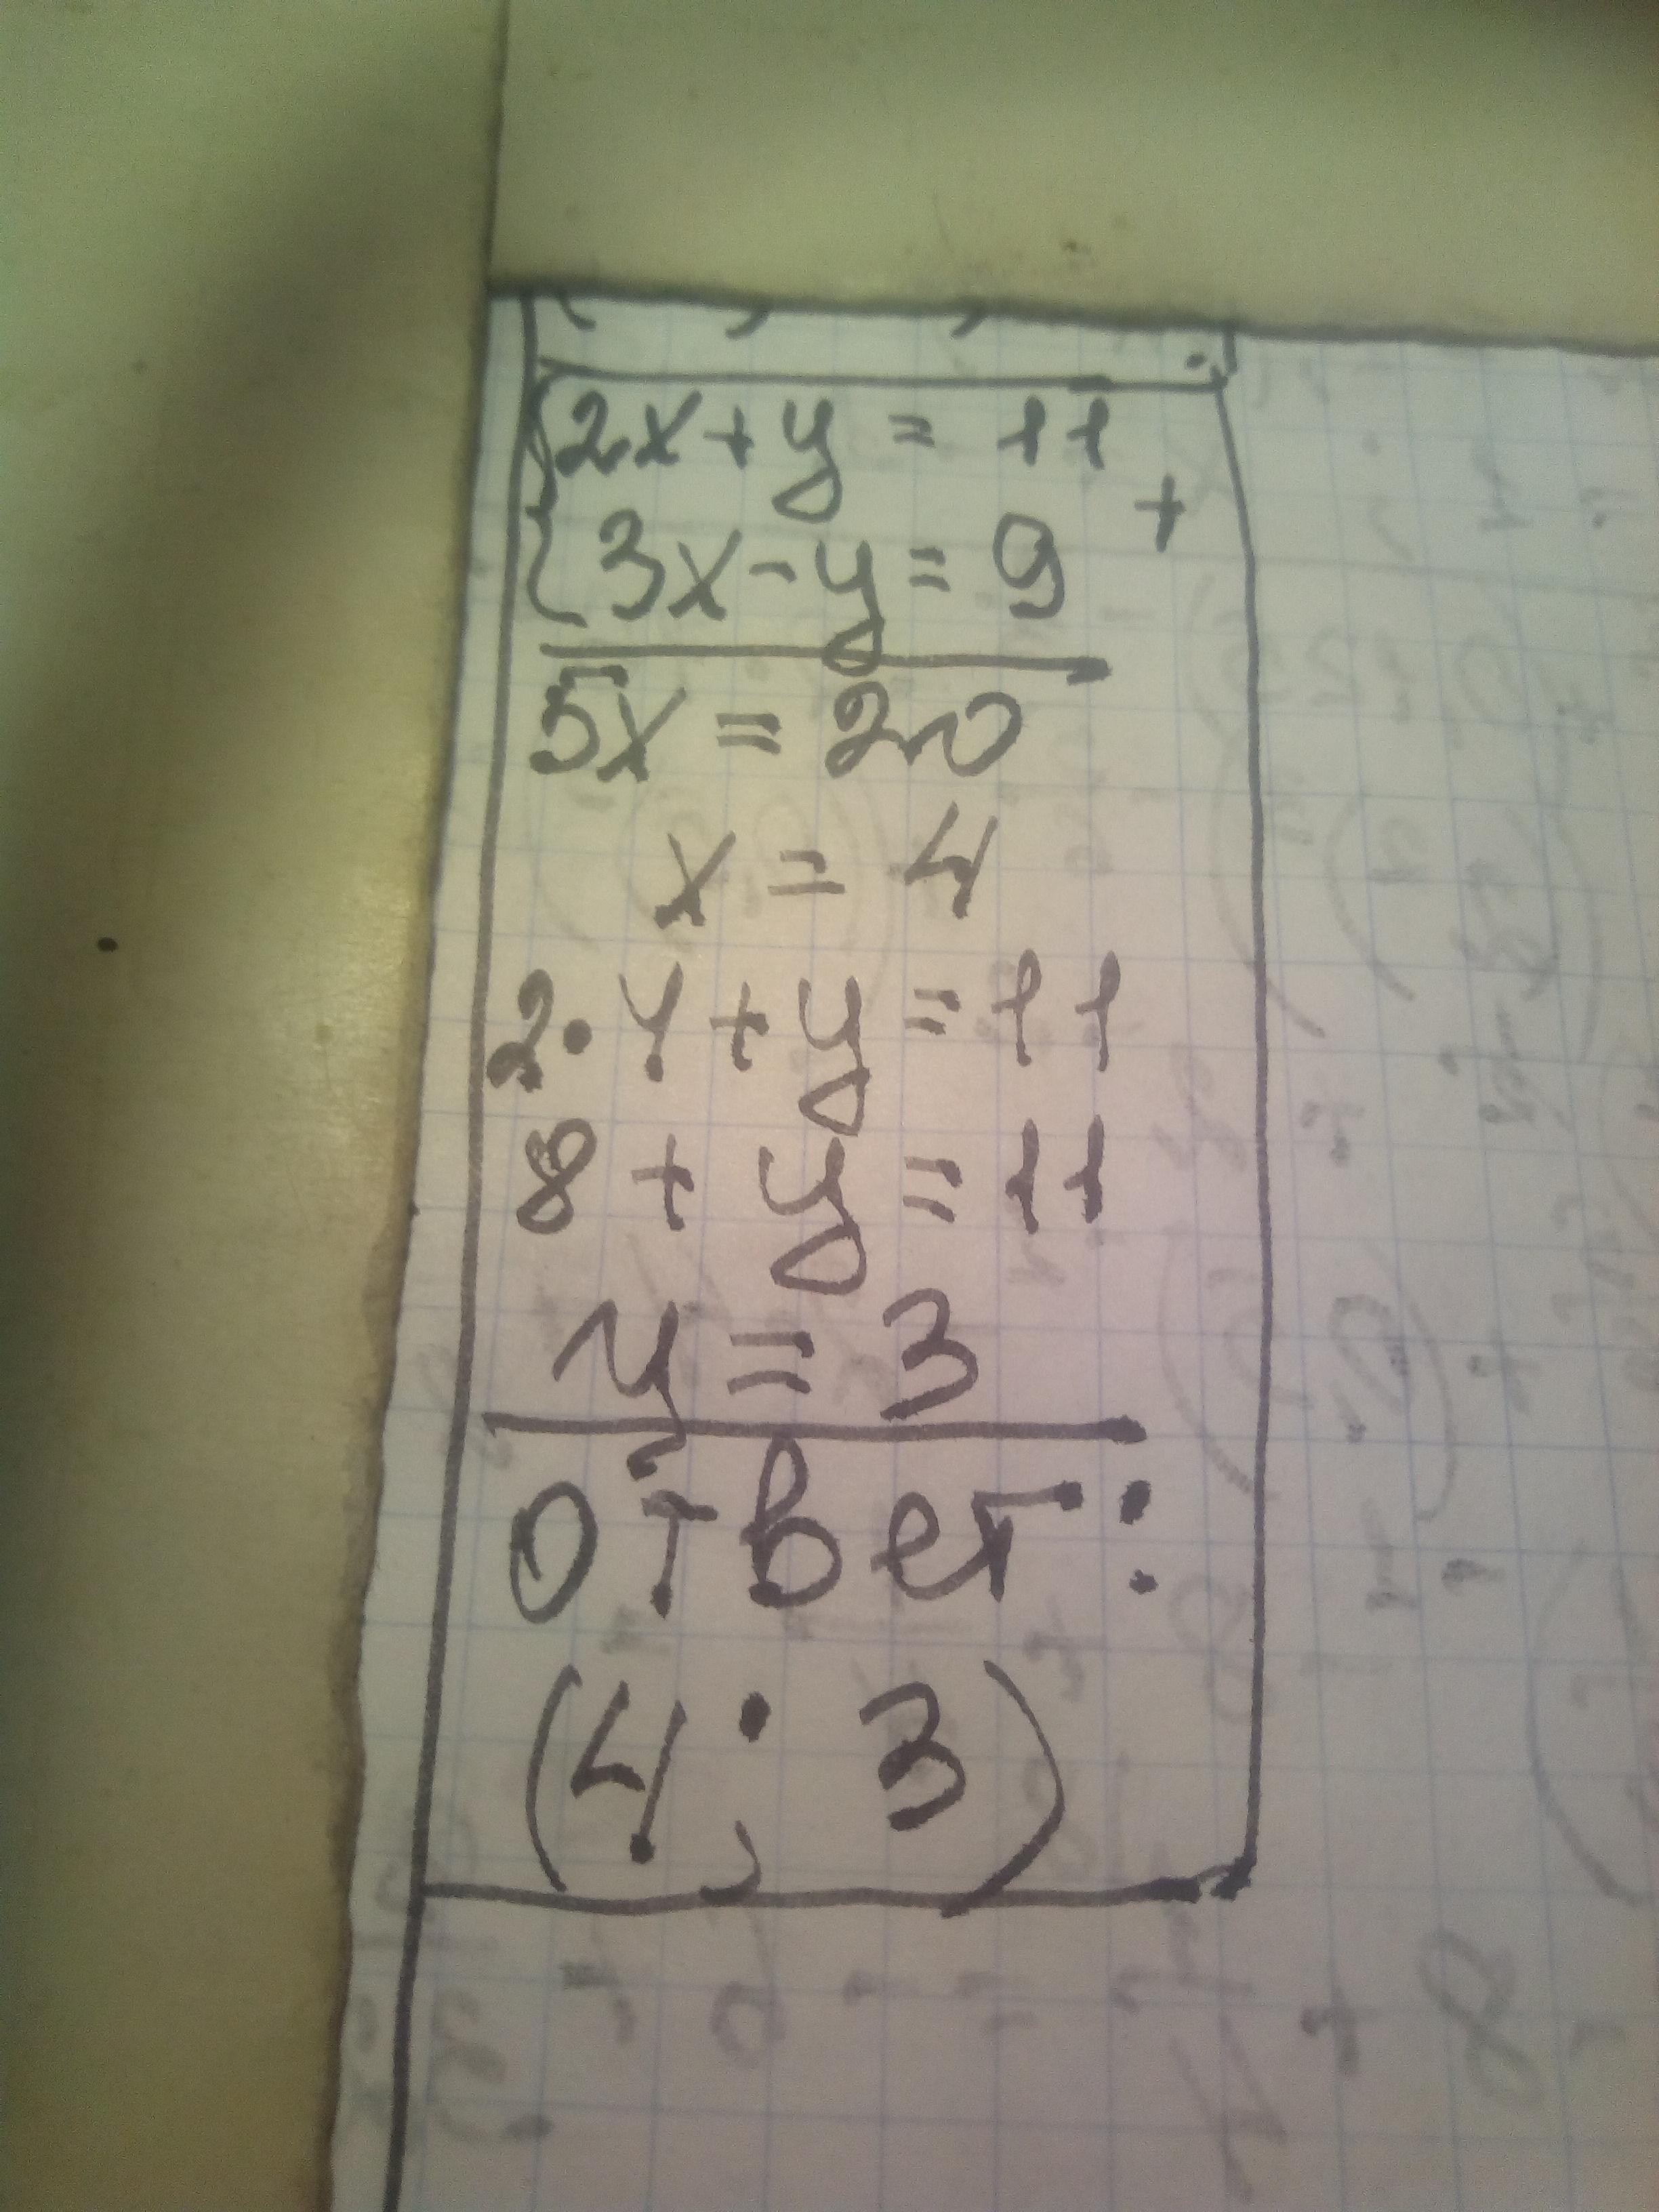 2x+y=11
+
3x-y=9
5x=20
x=4
2·4+y=11
8+y=11
y=3
Ответ:
(4;3)